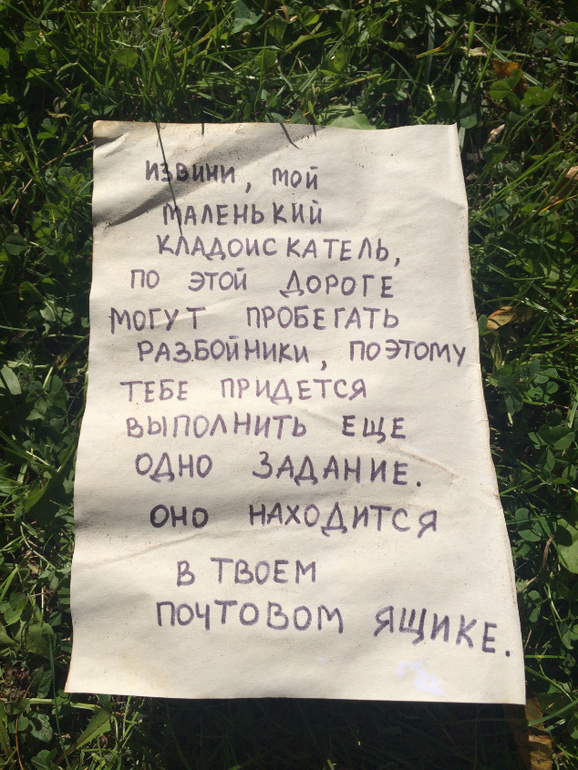 ИЗВИНИ, МОЙ
МАЛЕНЬКИЙ
КЛАДОИСКАТЕЛЬ,
ПО ЭТОЙ ДОРОГЕ
МОГУТ ПРОБЕГАТЬ
РАЗБОЙНИКИ, ПОЭТОМУ
ТЕБЕ ПРИДЕТСЯ
ВЫПОЛНИТЬ ЕЩЕ
ОДНО ЗАДАНИЕ.
ОНО НАХОДИТСЯ
В ТВОЕМ
ПОЧТОВОМ ЯЩИКЕ.